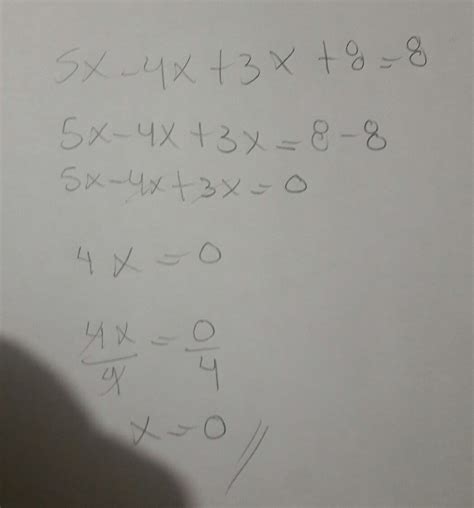 5x-4x+3x+8=8
5x-4x+3x=8-8
5x-4x+3x=0
4x=0
4x/4=0/4
x=0//